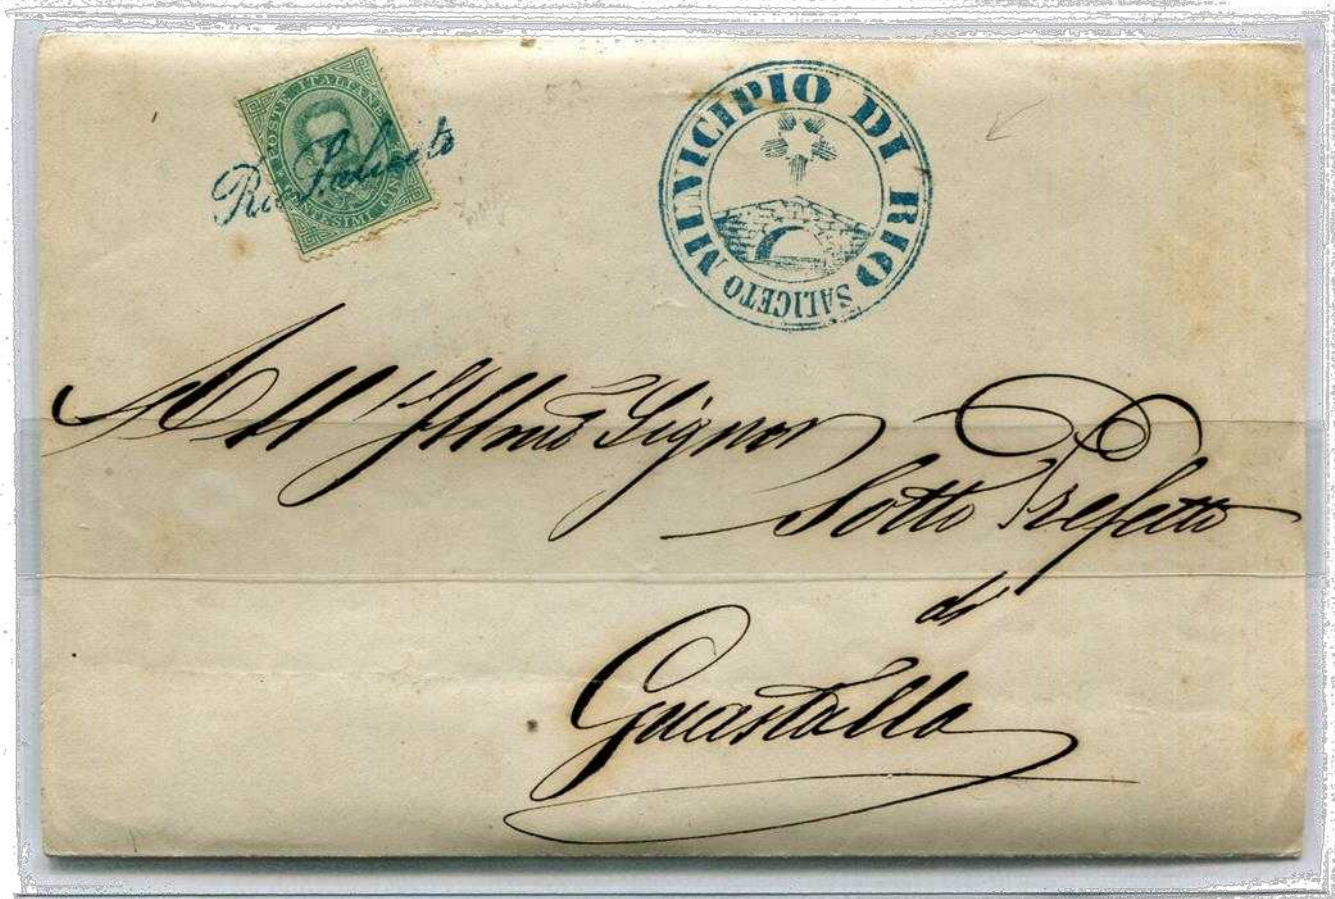 POSTE ITALIANE
CENTESIMI CIN
Rio Saliceto
MUNICIPIO DI RIO
SALICETO
All'Illmo Signor
Sotto Prefetto
di
Guastalla